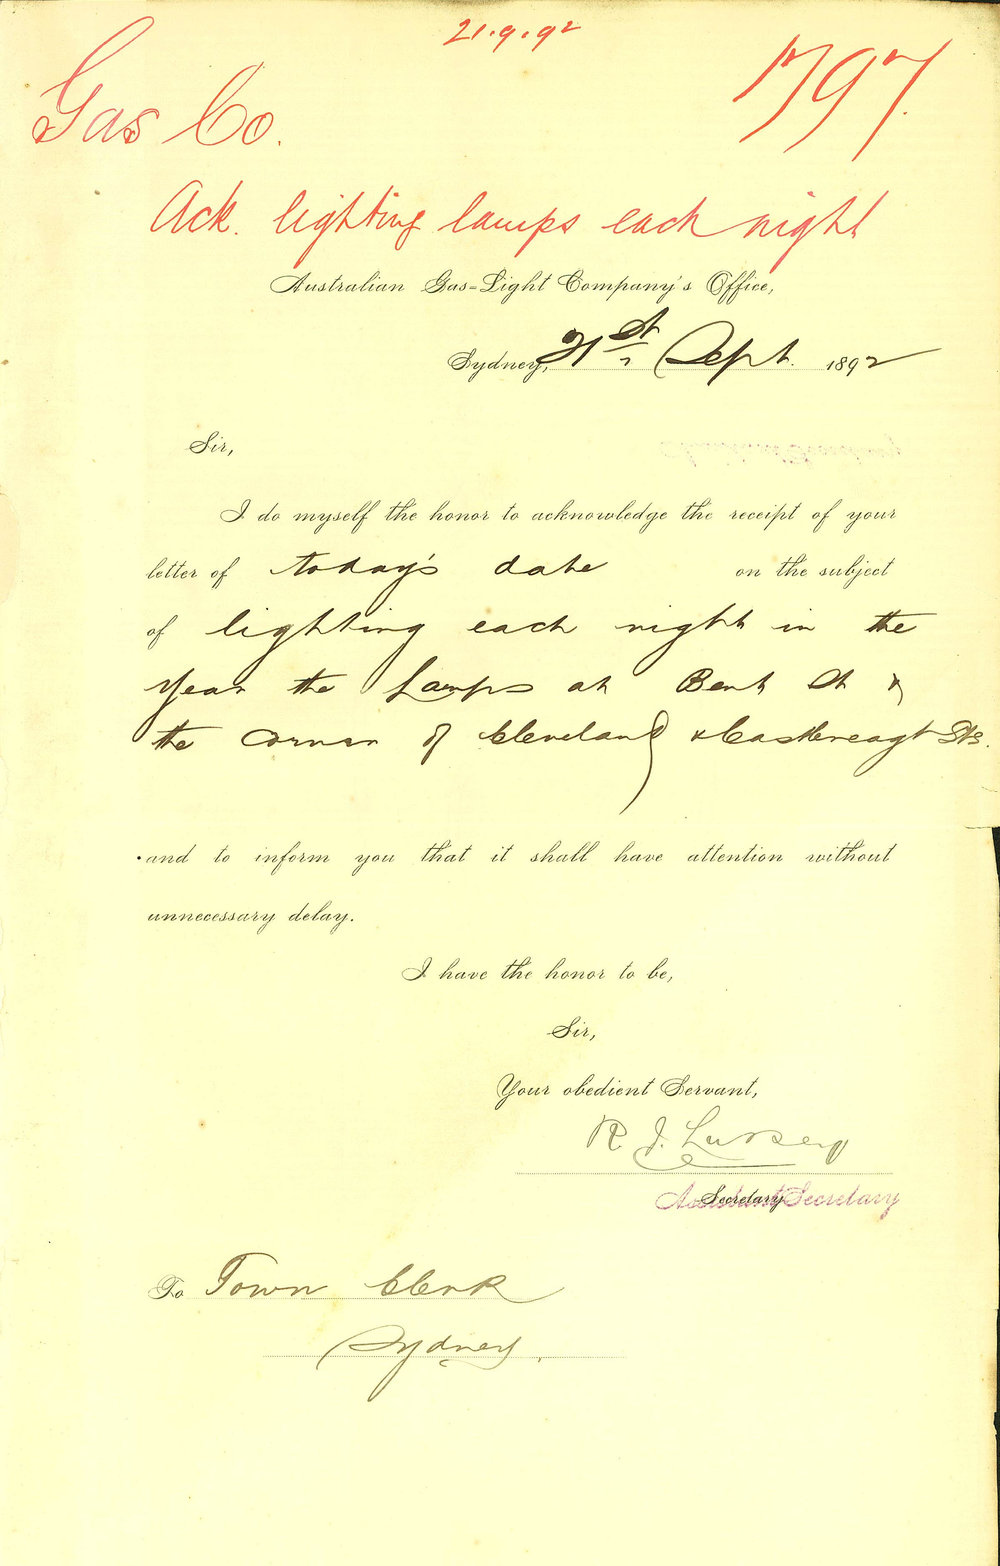 21.9.92
Gas Co. 1797.
Ack. lighting lamps each night
Australian Gas=Light Company's Office,
Sydney, 21st Sept. 1892
Sir,
I do myself the honor to acknowledge the receipt of your
letter of today's date on the subject
of lighting each night in the
Year the Lamps at Bent St &
the corner of Cleveland & Castlereagh Sts.
and to inform you that it shall have attention without
unnecessary delay.
I have the honor to be,
Sir,
Your obedient Servant,
R. J.
Assistant Secretary
Secretary
To Town Clerk
Sydney.